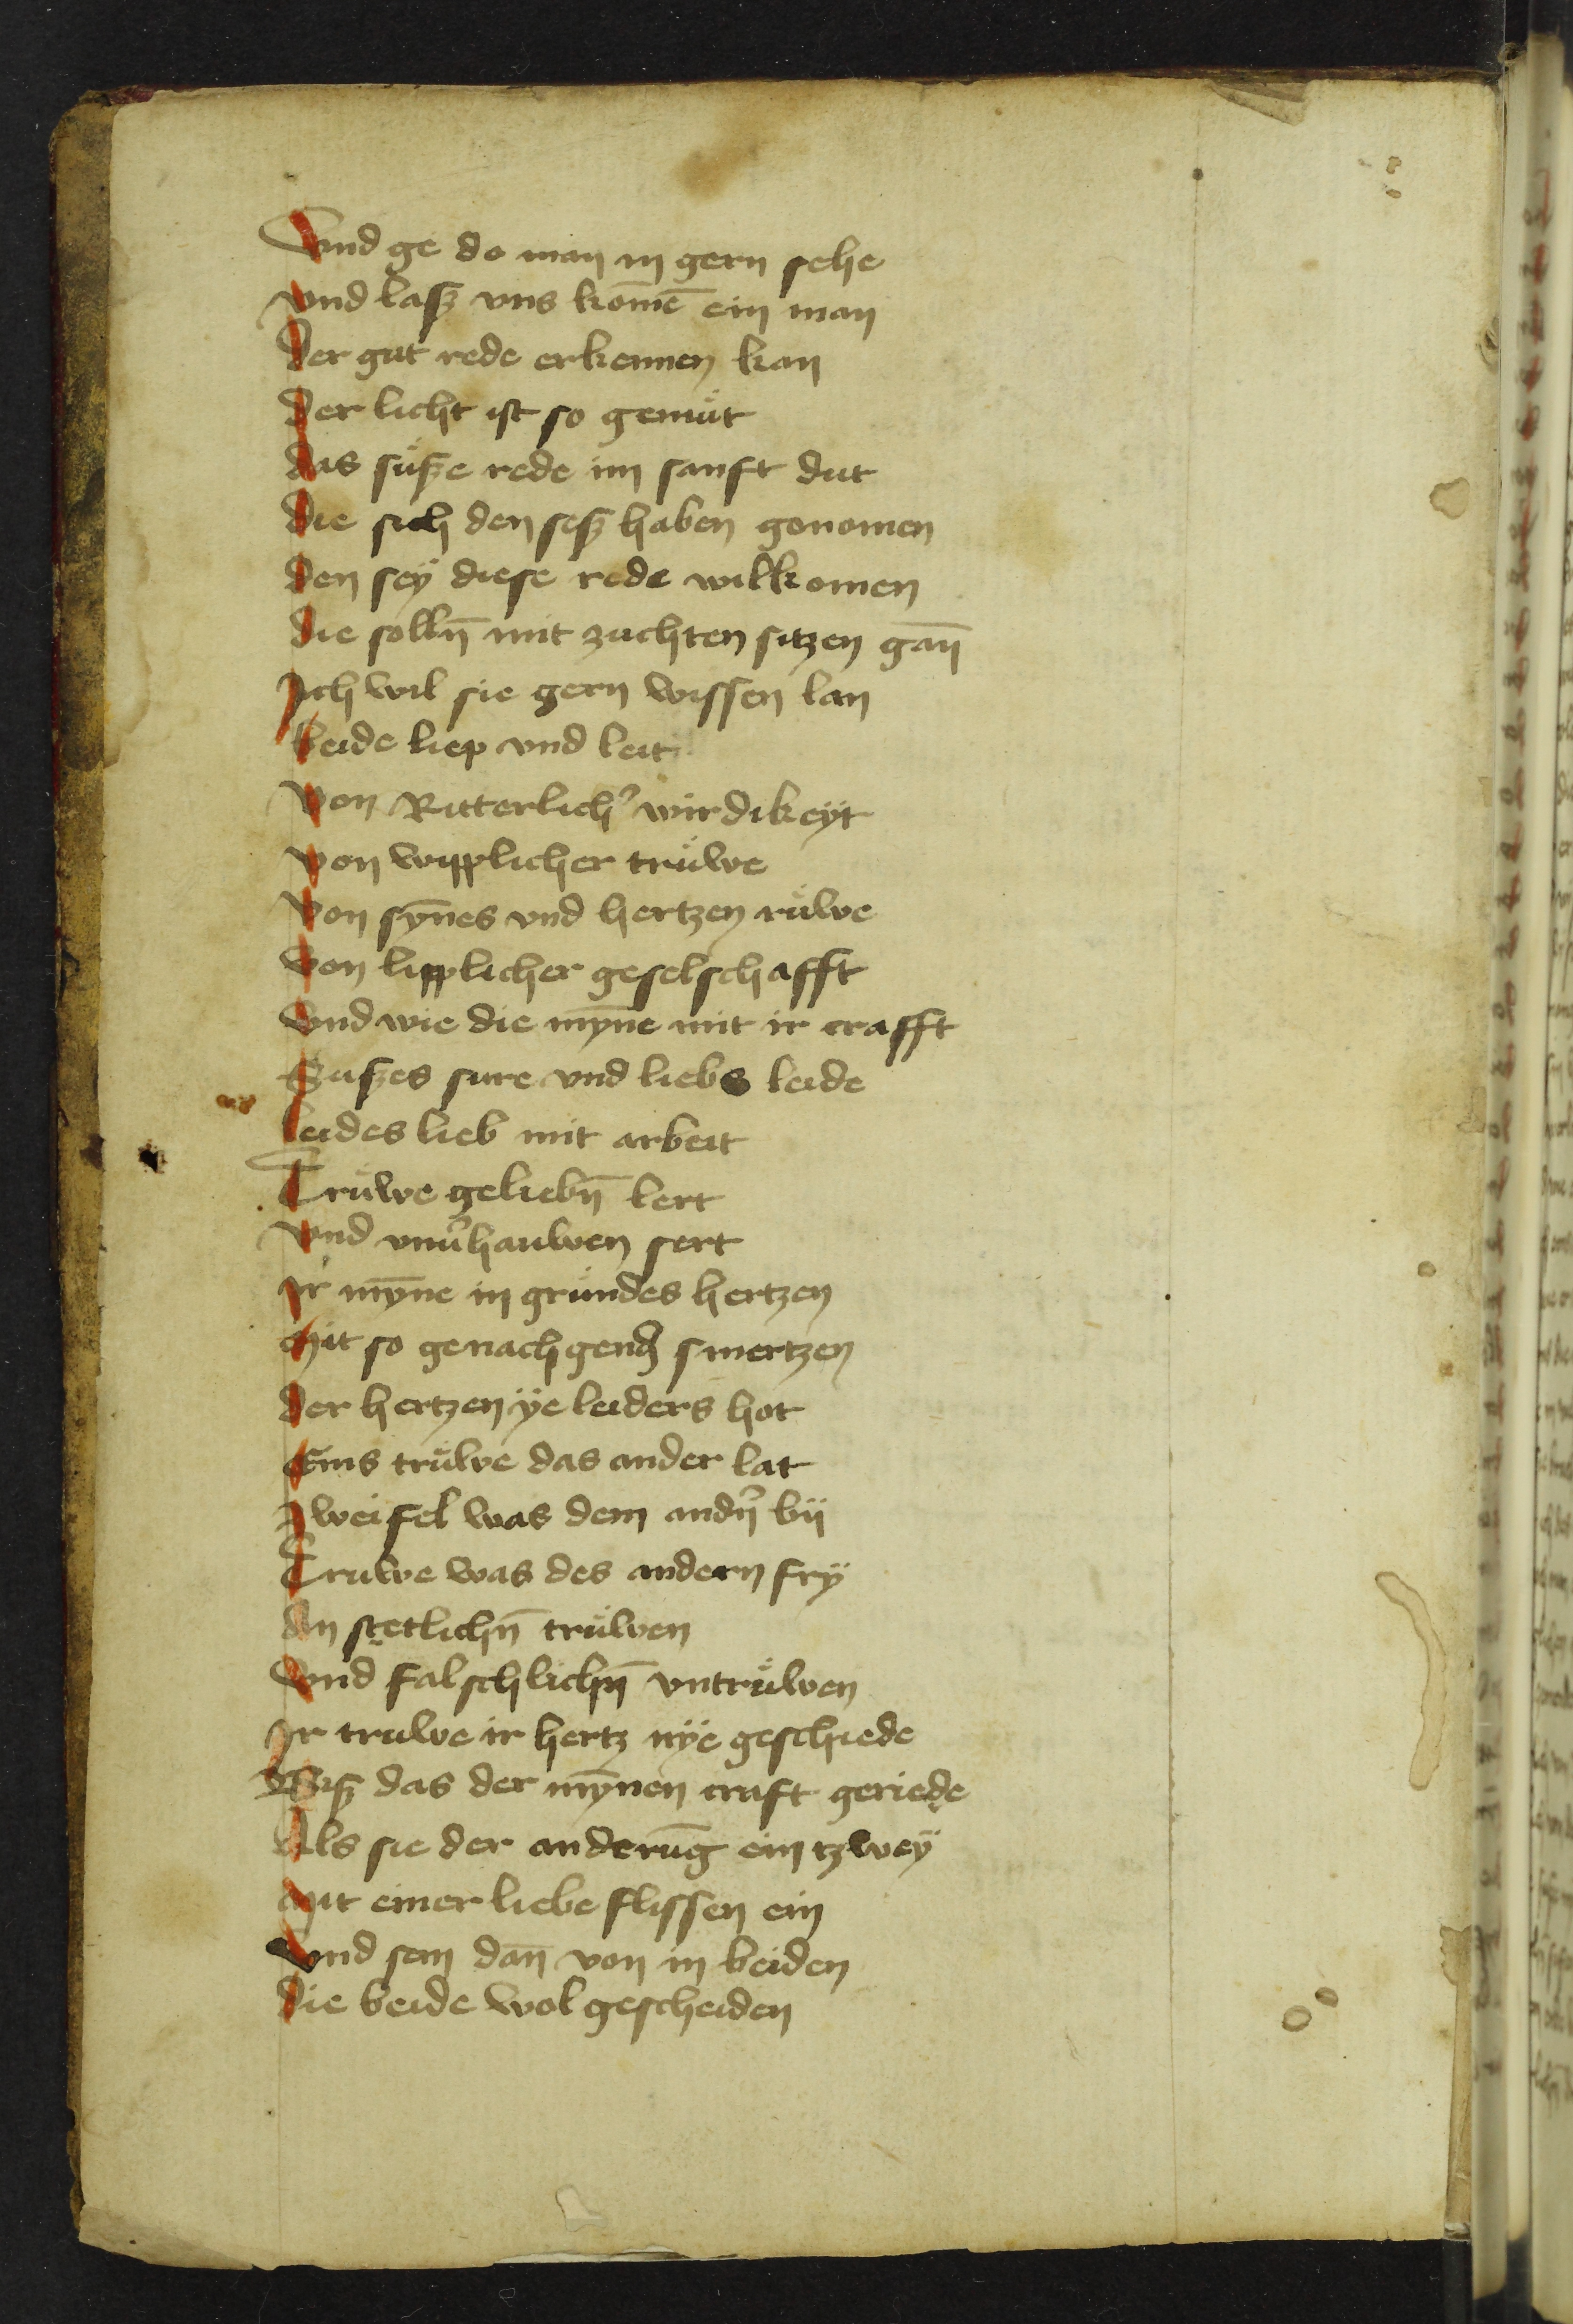 Vnd ge do man in gern sehe
vnd lasz vns kom̄e ein man
Der gut rede erkennen kan
Der licht ist so gemůt
das sůsze rede im sanft dut
die sich den sesz haben genomen
den seÿ diese rede wilkomen
die solln̄ mit zuchten sitzen gan̄
Ich wil sie gern wissen lan
beide liep vnd leit
Von Ritterlich' wirdikeÿt
Von wipplicher trůwe
Von syn̄es vnd hertzen růwe
Von lipplicher geselschafft
Vnd wie die myn̄e mit ir crafft
Suszes sure vnd liebs leide
leides lieb mit arbeit
Trůwe geliebn̄ lert
vnd vnu'hauwen sert
Ir myn̄e in grůndes hertzen
Mit so genachgend smertzen
Der hertzen ÿe leiders hot
Eins trůwe das ander lat
Zweifel was dem andn' bÿ
Truwe was des andern frÿ
An stetlichn̄ trůwen
Vnd falschlichn̄ vntrůwen
Ir truwe ir hertz nÿe geschiede
Bisz das der myn̄en craft geriede
Als sie der anderūg ein tzweÿ
Mit einer liebe flissen ein
Vnd sem dan̄ von in beiden
Die beide wol gescheiden